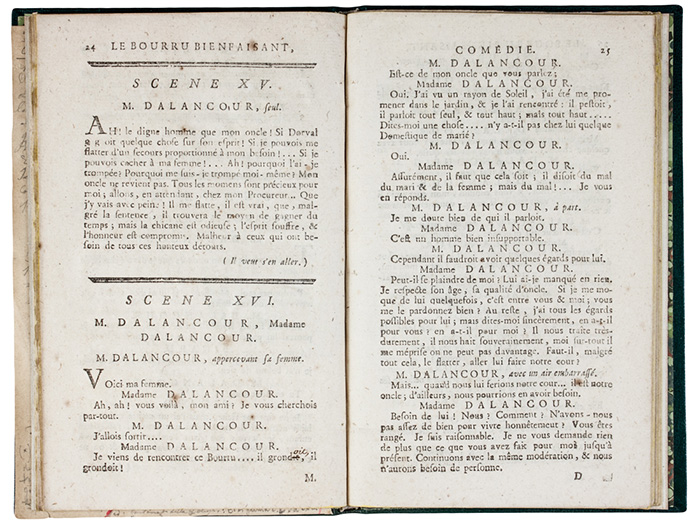 24 LE BOURRU BIENFAISANT,
SCENE XV.
M. DALANCOUR, seul.
AH! le digne homme que mon oncle! Si Dorval
g g oit quelque chose sur son esprit! Si je pouvois me
flatter d'un secours proportionné à mon besoin!... Si je
pouvois cacher à ma femme!... Ah! pourquoi l'ai-je
trompée? Pourquoi me suis-je trompé moi-même? Mon
oncle ne revient pas. Tous les momens sont précieux pour
moi; allons, en attendant, chez mon Procureur... Que
j'y vais avec peine! Il me flatte, il est vrai, que, mal-
gré la sentence, il trouvera le moyen de gagner du
temps; mais la chicane est odieuse; l'esprit souffre, &
l'honneur est compromis. Malheur à ceux qui ont be-
soin de tous ces honteux détours.
(Il veut s'en aller.)
SCENE XVI.
M. DALANCOUR, Madame
DALANCOUR.
M. DALANCOUR, appercevant sa femme.
Voici ma femme.
Madame DALANCOUR.
Ah, ah! vous voilà, mon ami? Je vous cherchois
par-tout.
M. DALANCOUR.
J'allois sortir....
Madame DALANCOUR.
Je viens de rencontrer ce Bourru.... il grondoit, il
grondoit!
M.
COMÉDIE. 25
M. DALANCOUR.
Est-ce de mon oncle que vous parlez;
Madame DALANCOUR.
Oui. J'ai vu un rayon de Soleil, j'ai été me pro-
mener dans le jardin, & je l'ai rencontré: il pestoit,
il parloit tout seul, & tout haut; mais tout haut.....
Dites-moi une chose.... n'y a-t-il pas chez lui quelque
Domestique de marié?
M. DALANCOUR.
Oui.
Madame DALANCOUR.
Assurément, il faut que cela soit; il disoit du mal
du mari & de la femme; mais du mal!... Je vous
en réponds.
M. DALANCOUR, à part.
Je me doute bien de qui il parloit.
Madame DALANCOUR.
C'est un homme bien insupportable.
M. DALANCOUR.
Cependant il faudroit avoir quelques égards pour lui.
Madame DALANCOUR.
Peut-il se plaindre de moi? Lui ai-je manqué en rien.
Je respecte son âge, sa qualité d'oncle. Si je me mo-
que de lui quelquefois, c'est entre vous & moi; vous
me le pardonnez bien? Au reste, j'ai tous les égards
possibles pour lui; mais dites-moi sincèrement, en a-t-il
pour vous? en a-t-il pour moi? Il nous traite très-
durement, il nous hait souverainement, moi sur-tout il
me méprise on ne peut pas davantage. Faut-il, malgré
tout cela, le flatter, aller lui faire notre cour?
M. DALANCOUR, avec un air embarrassé.
Mais... quand nous lui ferions notre cour... il est notre
oncle; d'ailleurs, nous pourrions en avoir besoin.
Madame DALANCOUR.
Besoin de lui! Nous? Comment? N'avons-nous
pas assez de bien pour vivre honnêtement? Vous êtes
rangé. Je suis raisonnable. Je ne vous demande rien
de plus que ce que vous avez fait pour moi jusqu'à
présent. Continuons avec la même modération, & nous
n'aurons besoin de personne.
D